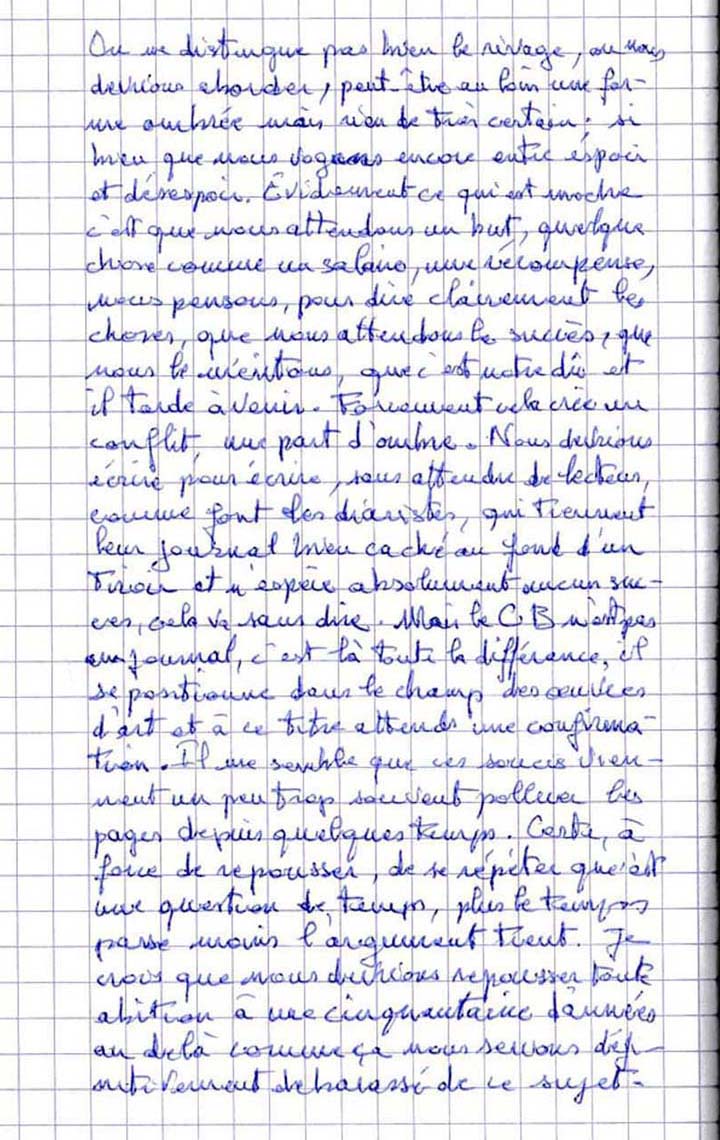 On ne distingue pas bien le rivage, où nous
devrions aborder, peut-être au loin une for-
me ombrée mais rien de très certain ; si
bien que nous voguons encore entre espoir
et désespoir. Évidemment ce qui est moche
c'est que nous attendons un but, quelque
chose comme un salaire, une récompense,
nous pensons, pour dire clairement les
choses, que nous attendons le succès, que
nous le méritons, que c'est notre dû et
il tarde à venir. Forcement cela crée un
conflit, une part d'ombre. Nous devrions
écrire pour écrire, sans attendre de lecteur,
comme font les diaristes, qui tiennent
leur journal bien caché au fond d'un
tiroir et n'espère absolument aucun suc-
ces, cela va sans dire. Mais le CB n'est pas
un journal, c'est là toute la différence, il
se positionne dans le champ des oeuvres
d'art et à ce titre attends une confirma-
tion. Il me semble que ces soucis vien-
nent un peu trop souvent polluer les
pages depuis quelques temps. Certe, à
force de repousser, de se répéter que c'est
une question de temps, plus le temps
passe moins l'argument tient. Je
crois que nous devrions repousser toute
abition à une cinquantaine d'années
au delà comme ça nous serions défi-
nitivement debarassé de ce sujet.